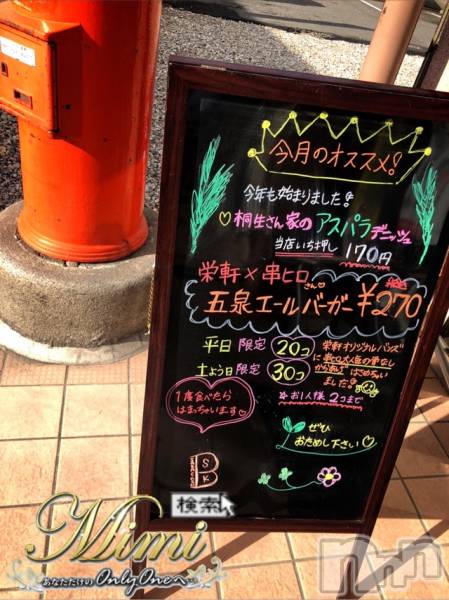 今月のオススメ!
今年も始まりました!
桐生さん家のアスパラデニッシュ
当店いち押し 170円
栄軒×串ヒロさん
五泉エールバーガー ¥270
平日限定 20コ
土よう日限定 30コ
栄軒オリジナルバンズ
に串ヒロ大人気の骨なし
からあげはさめちゃい
ました!
☆お1人様 2コまで
1度食べたら
はまっちゃいます♡
ぜひ
おためし下さい♡
B
S
K
検索
Mimi
あなただけのOnly Oneへ…